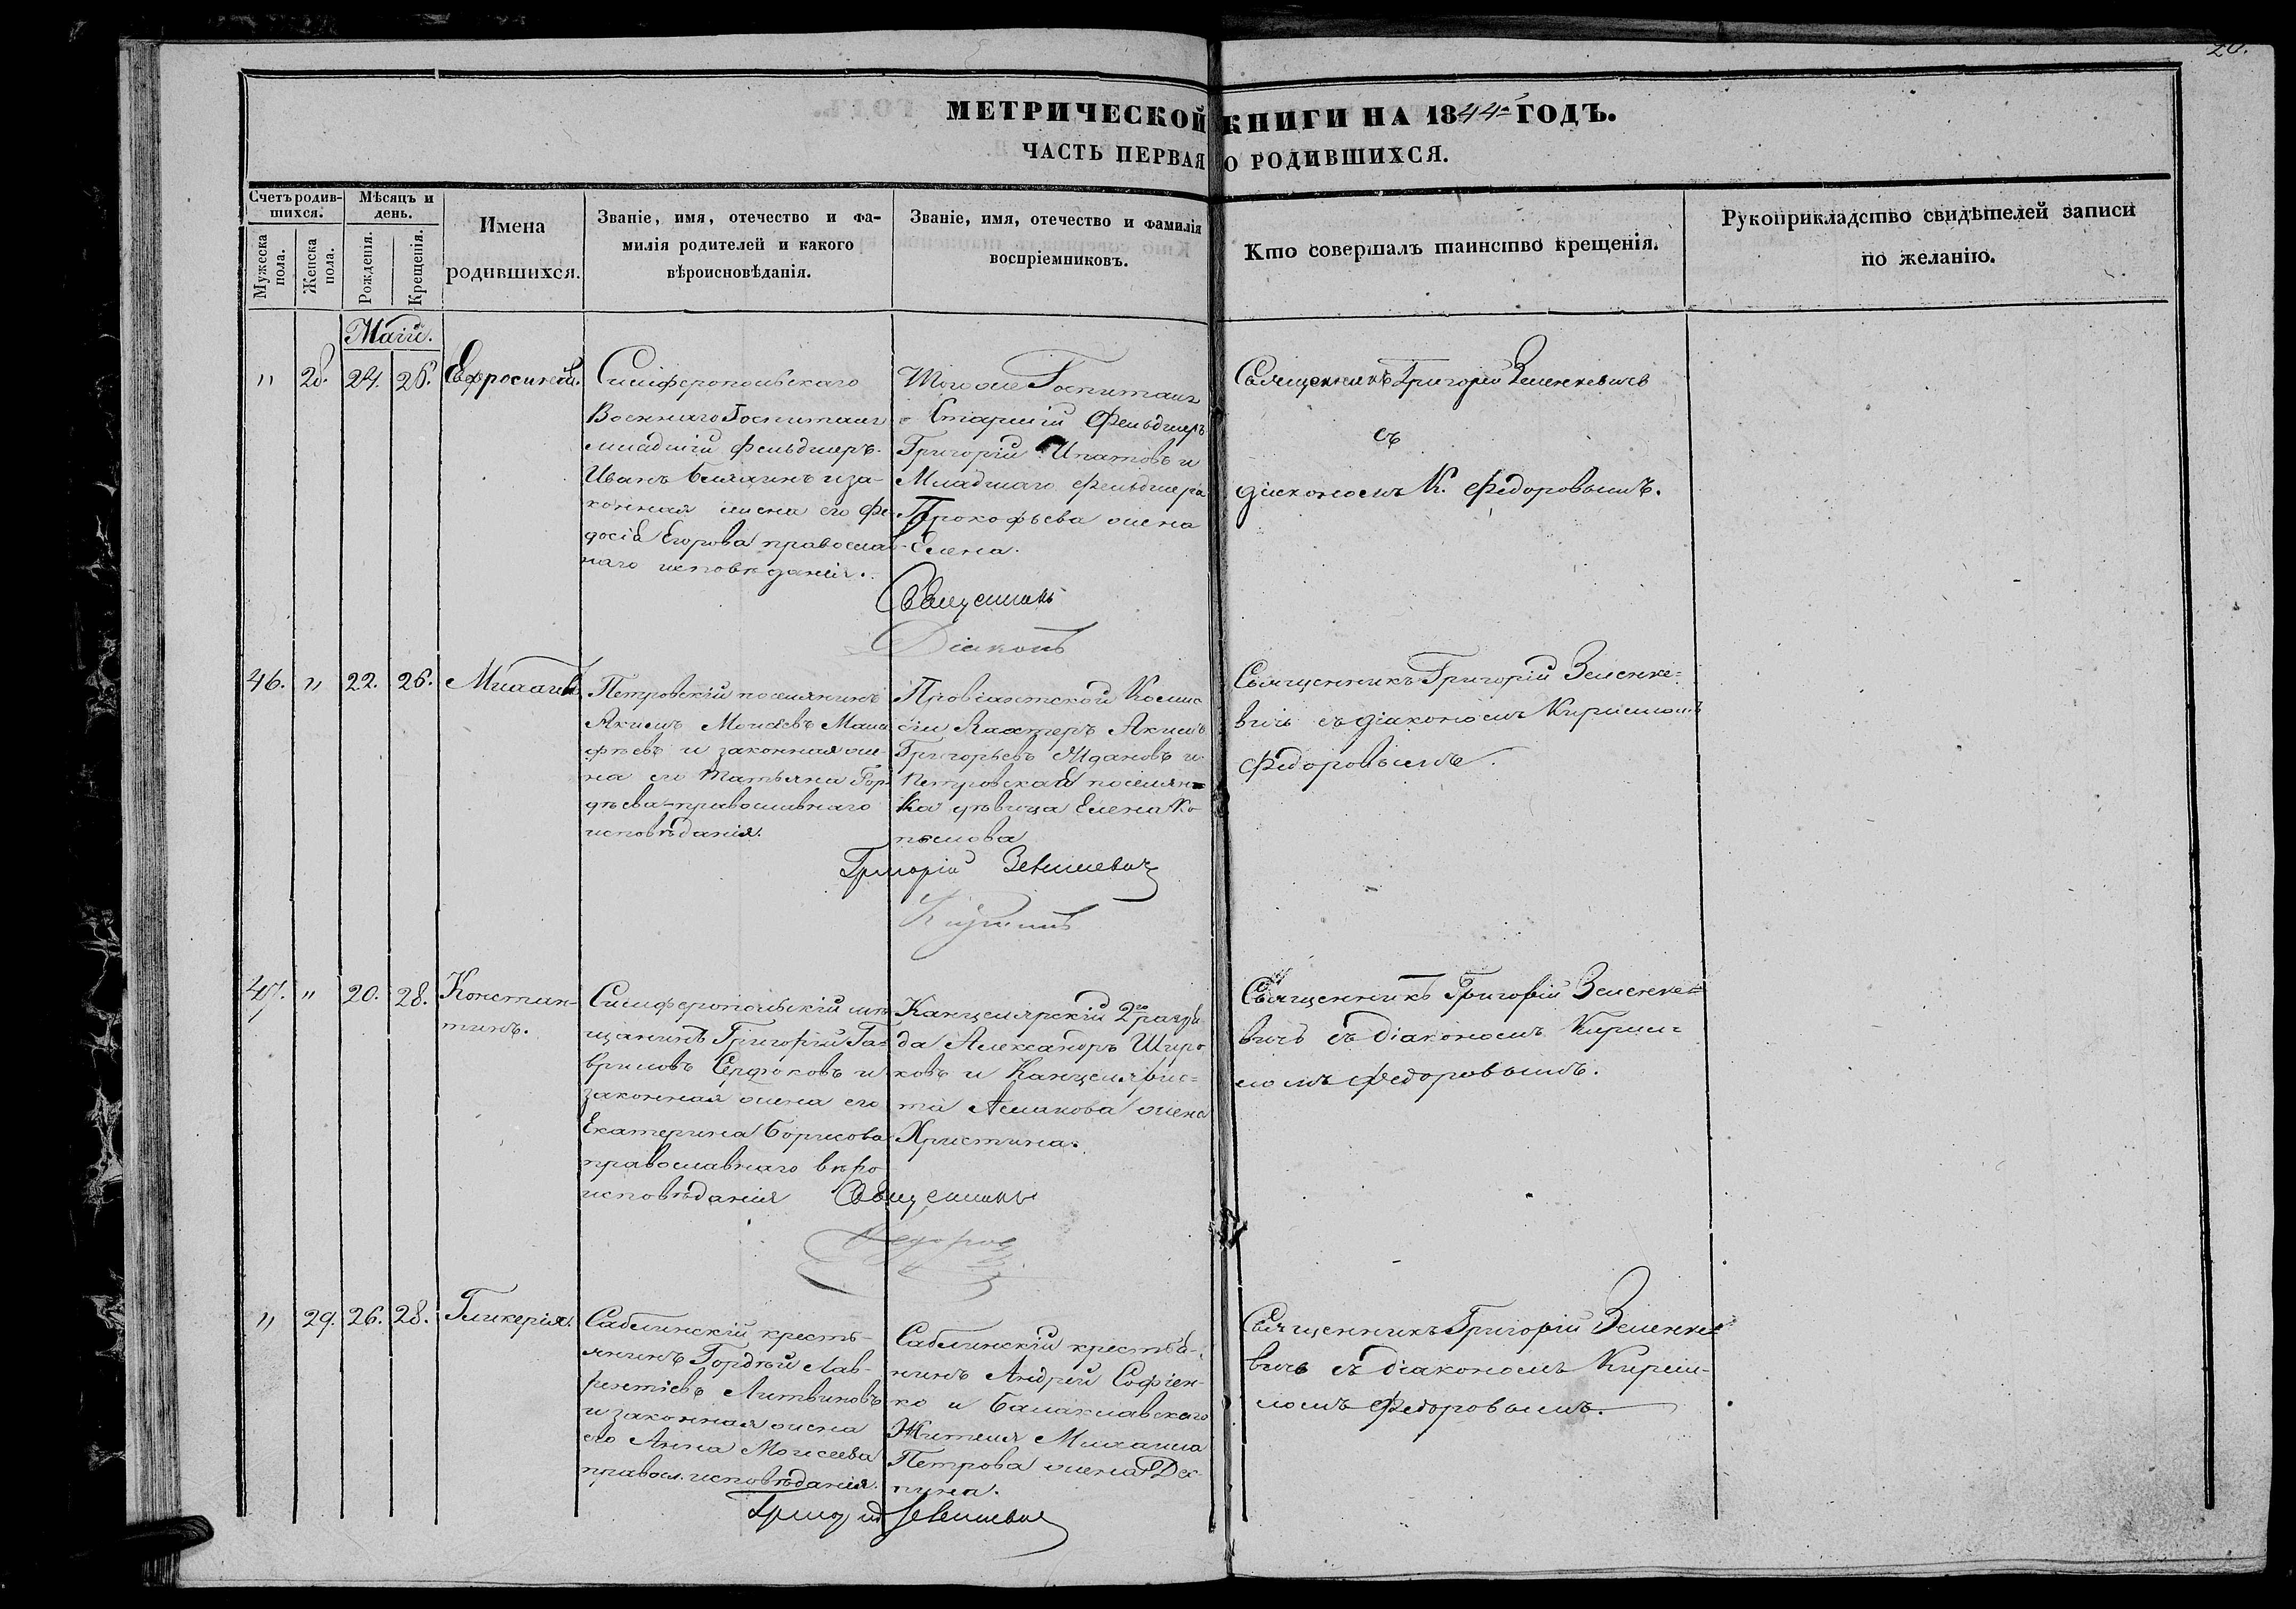 20.
МЕТРИЧЕСКОЙ КНИГИ НА 1844 ГОДЪ.
ЧАСТЬ ПЕРВАЯ О РОДИВШИХСЯ.
Счетъ родив-
шихся.
Мужеска
пола.
Женска
пола.
Мѣсяцъ и
день.
Рожденія.
Крещенія.
Имена
родившихся.
Званіе, имя, отечество и фа-
милія родителей и какого
вѣроисновѣданія.
Званіе, имя, отечество и фамилія
воспріемниковъ.
Кто совершалъ таинство крещенія.
Рукоприкладство свидѣтелей записи
по желанію.
Маій.
" 28. 24. 26. Евфросинія.
Симферопольскаго
Военнаго Госпиталя
младшій фельдшеръ
Иванъ Белякинъ и за-
конная жена его Фе-
досія Егорова православ-
наго исповѣданія.
Тогоже Госпиталя
Старшій Фельдшеръ
Григорій Ипатовъ и
Младшаго Фельдшера
Прокофьева жена
Елена.
Священникъ Григорій Зеленкевичъ
съ
діакономъ К. Федоровымъ.
Священникъ
Діаконъ
46. " 22. 26. Михаилъ.
Петровскій поселянинъ
Акимъ Моисѣевъ
и законная же-
на его Татьяна Гор-
дѣева православнаго
исповѣданія.
Провіантской Комис
сіи Вахтеръ Акимъ
Григорьевъ Ждановъ и
Петровская поселян-
ка дѣвица Елена Ко-
пылова
Священникъ Григорій Зеленке-
вичь съ діакономъ Кирилломъ
Федоровымъ.
Григорій Зеленкевичъ
Кириллъ
47. " 20. 28. Констан-
тинъ.
Симферопольскій мѣ
щанинъ Григорій Га-
вриловъ Сердюковъ и
законная жена его
Екатерина Борисова
православнаго вѣро
исповѣданія
Канцелярскій 2го разря
да Александръ Широ
ковъ и Канцелярис-
та Асланова жена
Христина.
Священникъ Григорій Зеленке-
вичъ съ діакономъ Кирил-
ломъ Федоровымъ.
Священникъ
Федоровъ
" 29. 26. 28. Гликерія.
Саблинскій кресть-
янинъ Гордѣй Лав-
рентіевъ Литвиновъ
и законная жена
его Анна Моисеева
правосл. исповѣданія.
Саблинскій крестья-
нинъ Андрей Софіен-
ко и Балаклавскаго
Жителя Михаила
Петрова жена Дес-
пина.
Священникъ Григорій Зеленке-
вичь съ діакономъ Кирил-
ломъ Федоровымъ.
Григорій Зеленкевичъ